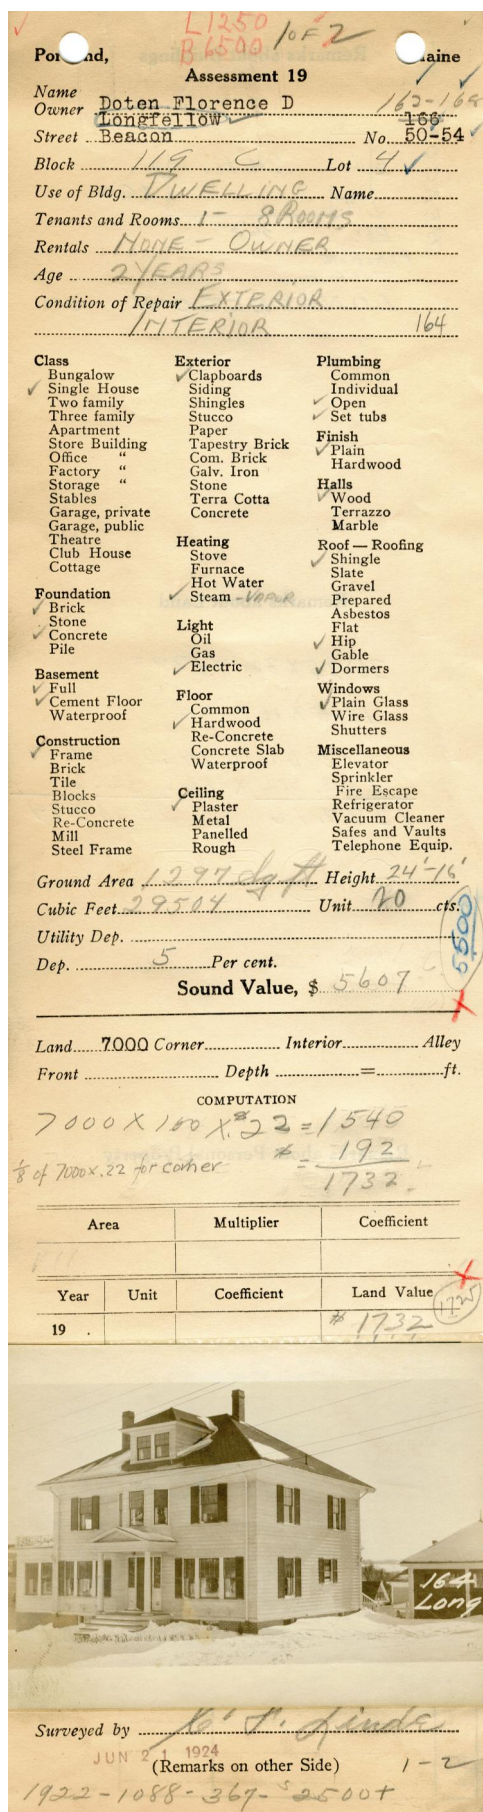 L1250
B6500
1 OF 2
Portland, Maine
Assessment 19
Name
Owner Doten Florence D 162-168
Longfellow 166
Street Beacon No. 50-54
Block 119 C Lot 4
Use of Bldg. DWELLING Name
Tenants and Rooms 1- 8 ROOMS
Rentals NONE - OWNER
Age 2 YEARS
Condition of Repair EXTERIOR
INTERIOR 164
Class
Bungalow
Single House
Two family
Three family
Apartment
Store Building
Office "
Factory "
Storage "
Stables
Garage, private
Garage, public
Theatre
Club House
Cottage
Foundation
Brick
Stone
Concrete
Pile
Basement
Full
Cement Floor
Waterproof
Construction
Frame
Brick
Tile
Blocks
Stucco
Re-Concrete
Mill
Steel Frame
Exterior
Clapboards
Siding
Shingles
Stucco
Paper
Tapestry Brick
Com. Brick
Galv. Iron
Stone
Terra Cotta
Concrete
Heating
Stove
Furnace
Hot Water
Steam - VAPOR
Light
Oil
Gas
Electric
Floor
Common
Hardwood
Re-Concrete
Concrete Slab
Waterproof
Ceiling
Plaster
Metal
Panelled
Rough
Plumbing
Common
Individual
Open
Set tubs
Finish
Plain
Hardwood
Halls
Wood
Terrazzo
Marble
Roof — Roofing
Shingle
Slate
Gravel
Prepared
Asbestos
Flat
Hip
Gable
Dormers
Windows
Plain Glass
Wire Glass
Shutters
Miscellaneous
Elevator
Sprinkler
Fire Escape
Refrigerator
Vacuum Cleaner
Safes and Vaults
Telephone Equip.
Ground Area 1297 Sq ft Height 24'-16'
Cubic Feet 29504 Unit 20 cts.
Utility Dep.
5500
Dep. 5 Per cent.
Sound Value, $ 5607
Land 7000 Corner Interior Alley
Front Depth = ft.
COMPUTATION
7000 X 100 X .22 = 1540
1/8 of 7000x.22 for corner = 192
1732
Area Multiplier Coefficient
Year Unit Coefficient Land Value
1725
19 . $ 1732
164
Long
Surveyed by
JUN 21 1924
(Remarks on other Side) 1-2
1922-1088-367-$2500+